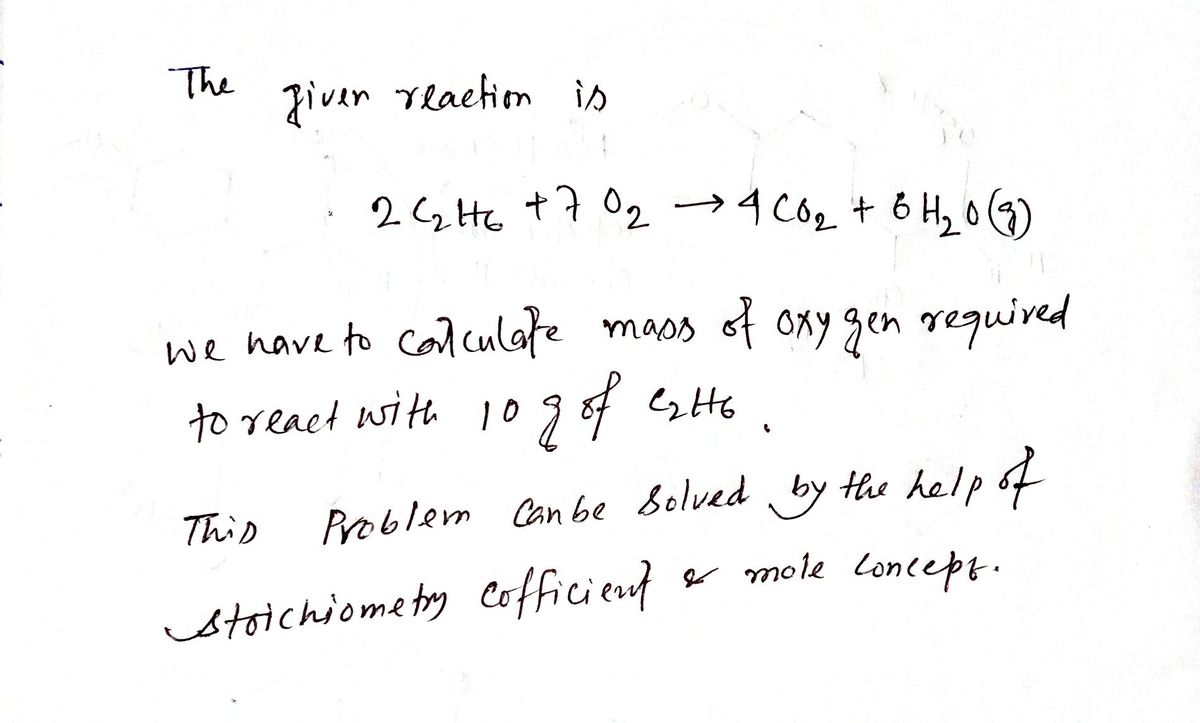 The given reaction is
2 C2H6 + 7 O2 → 4 CO2 + 6 H2O(g)
we have to calculate mass of oxygen required
to react with 10 g of C2H6.
This Problem Can be Solved by the help of
stoichiometry cofficient & mole concept.